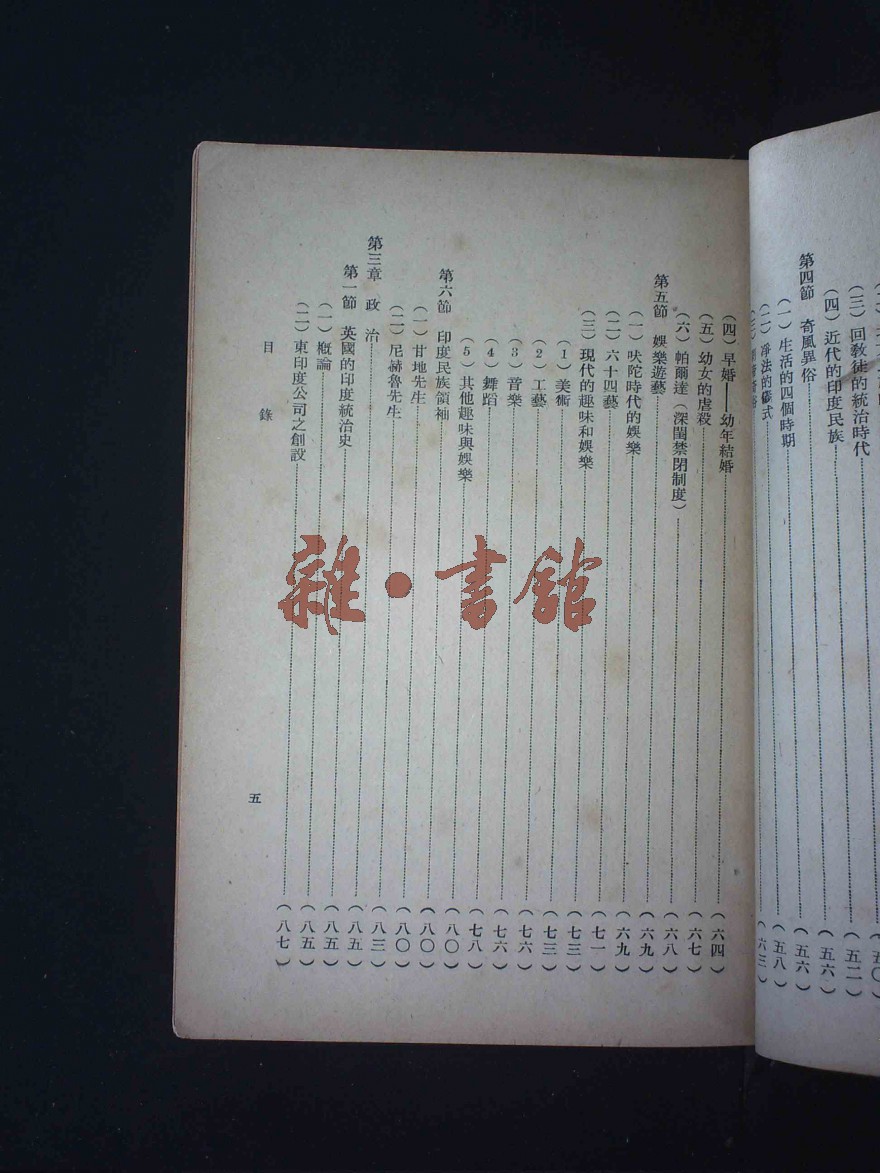 (三)回教徒的統治時代……(五二)
(四)近代的印度民族……(五六)
第四節 奇風異俗……(五六)
(一)生活的四個時期……(五八)
(二)淨法的儀式……(六三)
(四)早婚——幼年結婚……(六四)
(五)幼女的虐殺……(六七)
(六)帕爾達(深閨禁閉制度)……(六八)
第五節 娛樂遊藝……(六九)
(一)吠陀時代的娛樂……(六九)
(二)六十四藝……(七一)
(三)現代的趣味和娛樂……(七三)
(1)美術……(七三)
(2)工藝……(七六)
(3)音樂……(七六)
(4)舞蹈……(七八)
(5)其他趣味與娛樂……(八〇)
第六節 印度民族領袖……(八〇)
(一)甘地先生……(八〇)
(二)尼赫魯先生……(八三)
第三章 政治……(八五)
第一節 英國的印度統治史……(八五)
(一)概論……(八五)
(二)東印度公司之創設……(八七)
目錄
五
雜·書館